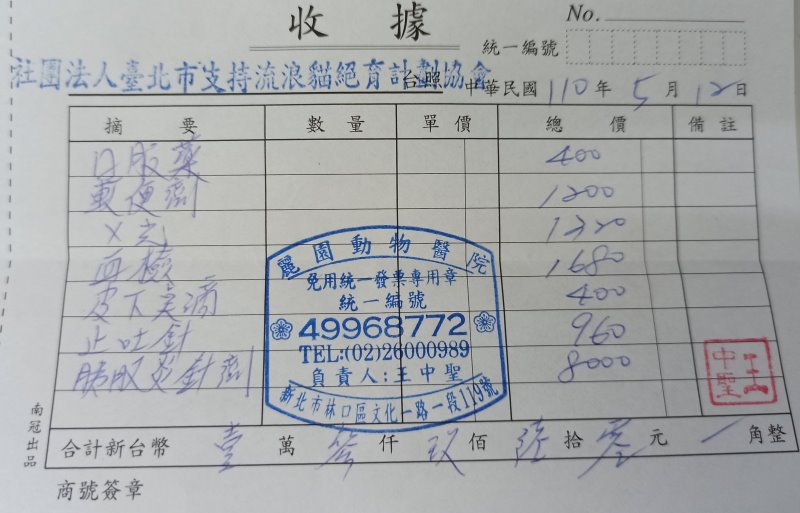 收 據
No.
統一編號
社團法人臺北市支持流浪貓絕育計劃協會 台照 中華民國 110 年 5 月 12 日
摘 要 數 量 單 價 總 價 備 註
口服藥 400
軟便劑 1200
X光 1320
血檢 1680
皮下点滴 400
止吐針 960
針劑 8000
麗園動物醫院
免用統一發票專用章
統一編號
49968772
TEL:(02)26000989
負責人:王中聖
新北市林口區文化一路一段119號
王中聖
合計新台幣 壹 萬 叁 仟 玖 佰 陸 拾 零 元 角整
商號簽章
南冠出品